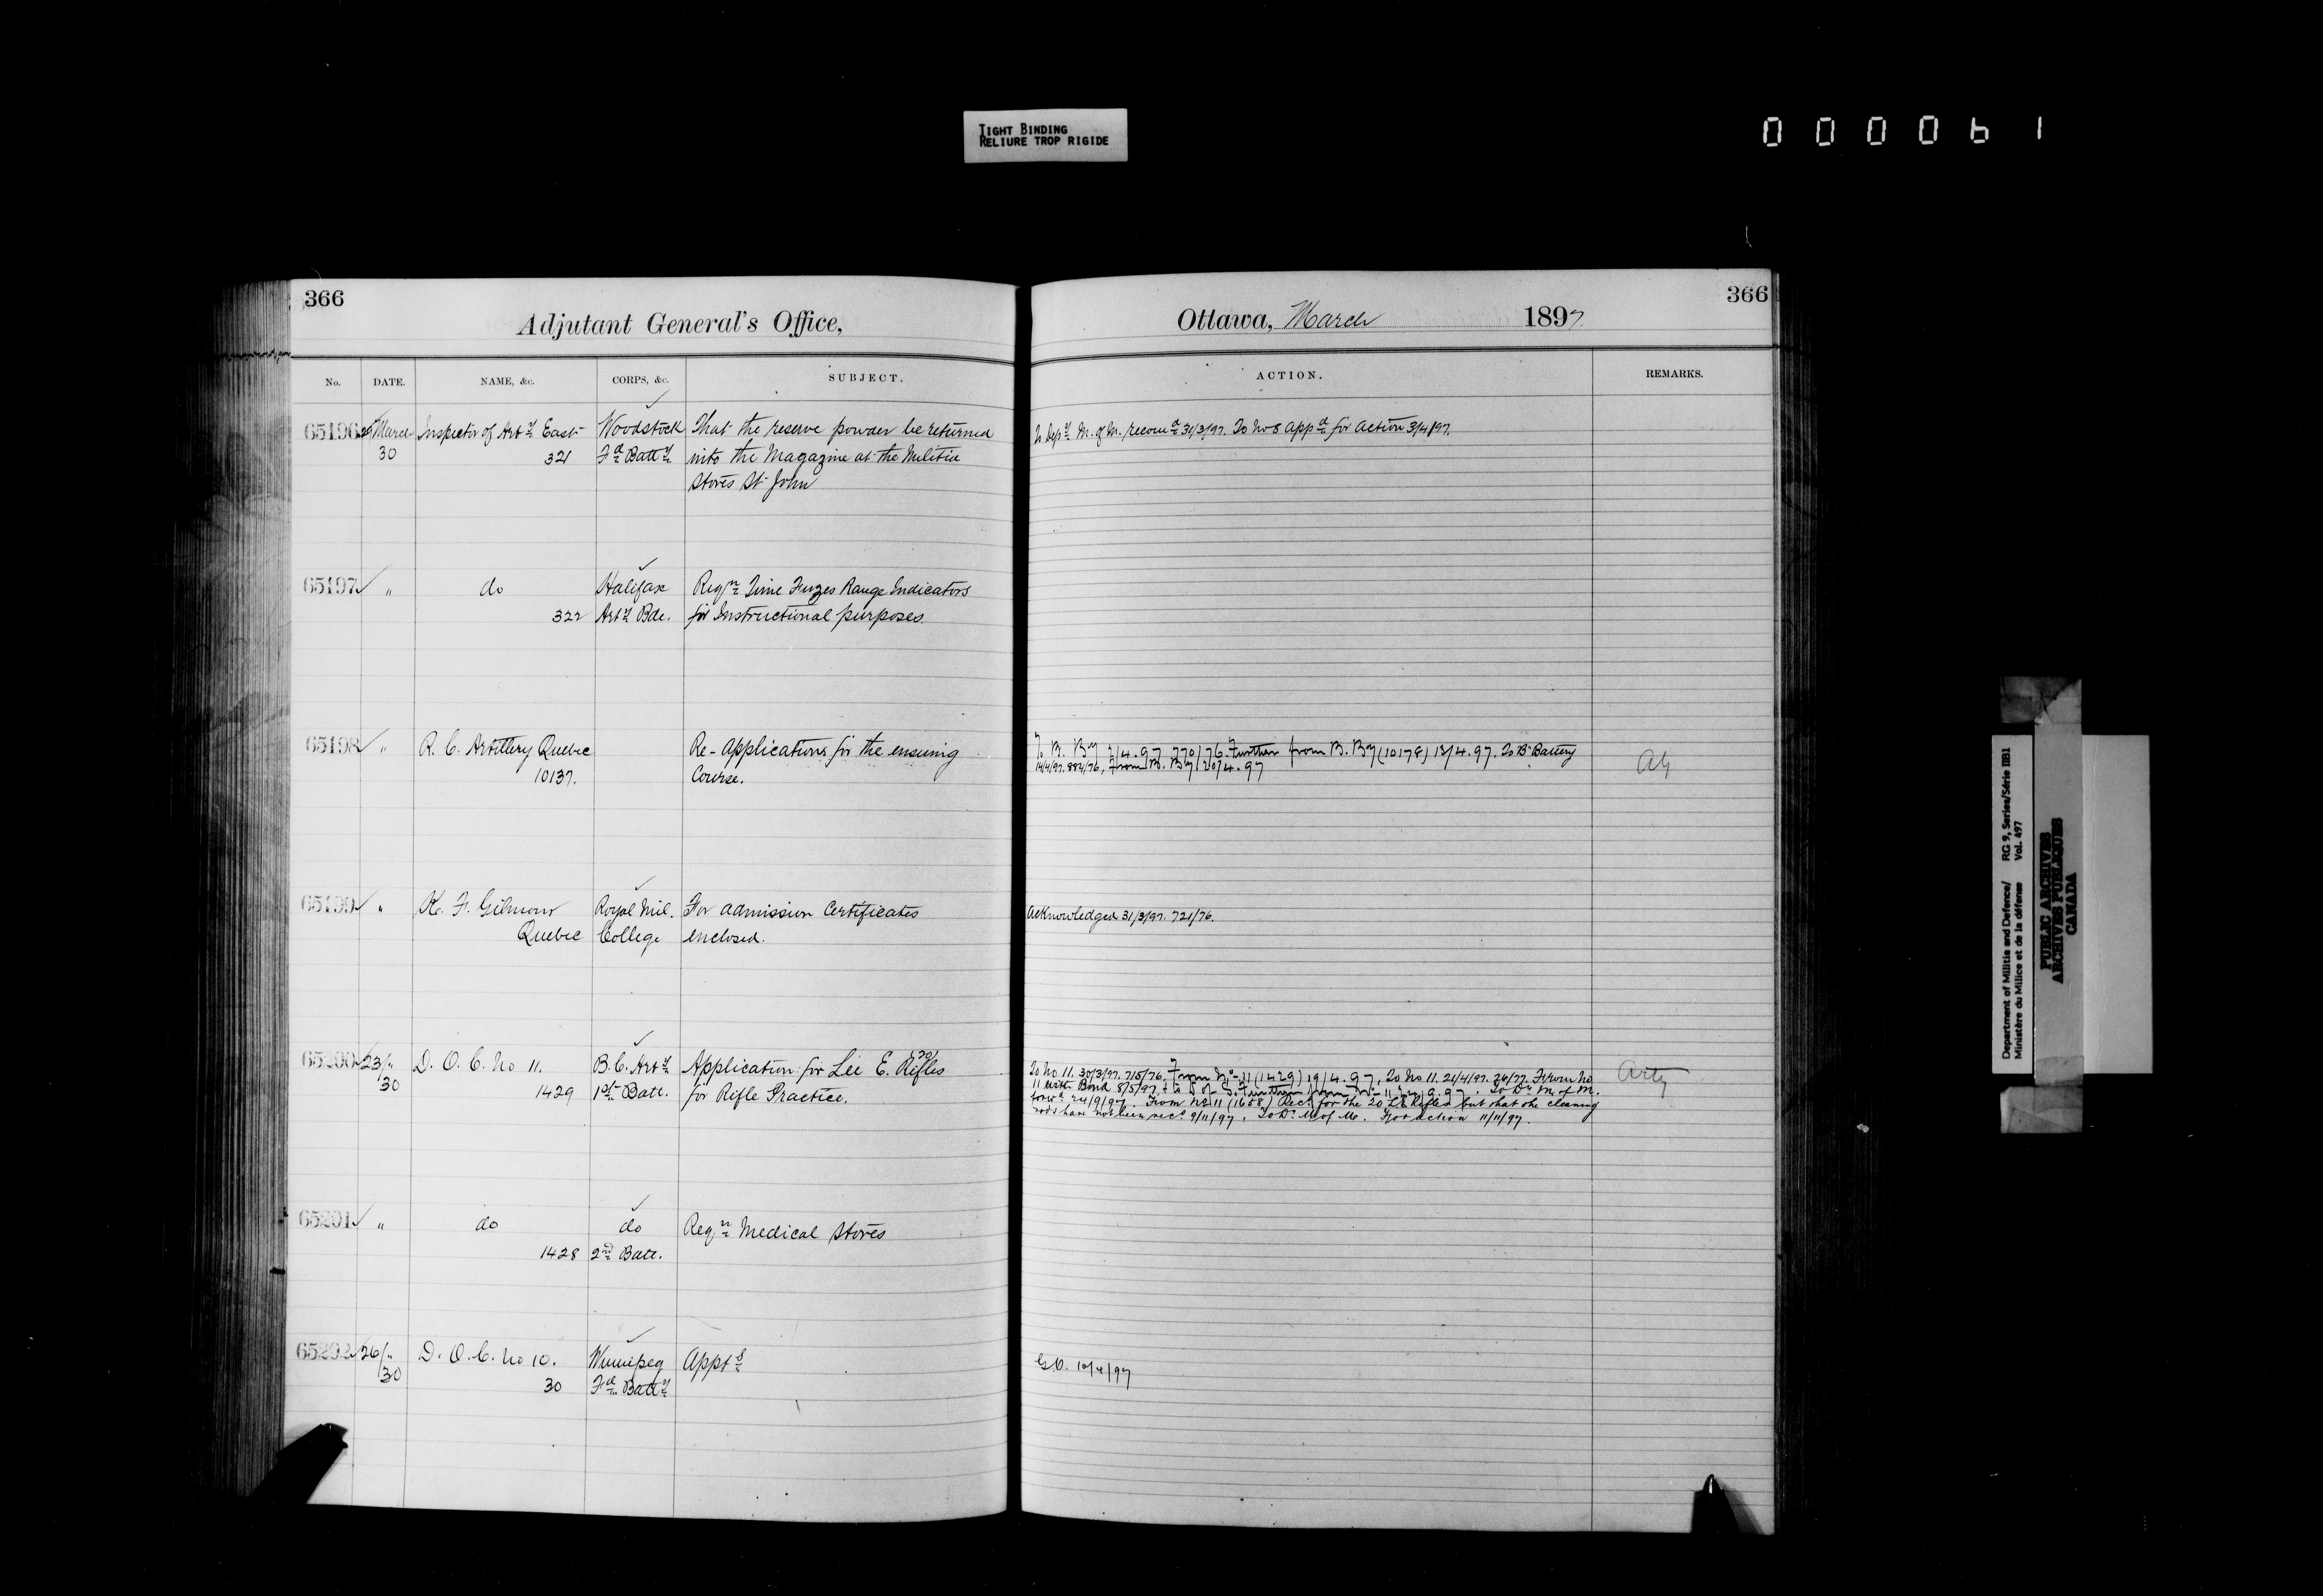 TIGHT BINDING
RELIURE TROP RIGIDE
000061
366
Adjutant General's Office,
No. DATE. NAME, &c. CORPS, &c. SUBJECT.
65196 March Inspector of Arty East Woodstock That the reserve powder be returned
30 321 Fd Batty into the Magazine at the Militia
Stores St John
65197 " do Halifax Reqn Time Fuzes Range Indicators
322 Arty Bde. for Instructional purposes.
65198 " R. C. Artillery Quebec Re-Applications for the ensuing
10137. Course.
65199 " K. F. Gilmour Royal Mil. For admission Certificates
Quebec College enclosed.
65200 23/" D. O. C. No 11. B.C. Arty Application for Lee E. Rifles (20)
30 1429 1st Batt. for Rifle Practice.
65201 " do do Reqn Medical Stores
1428 2nd Batt.
65202 26/" D. O. C. No 10. Winnipeg Appts
30 30 Fd Batty
366
Ottawa, March 1897
ACTION. REMARKS.
Depy M. of M. recomd 31/3/97. To No 8 appd for action 3/4/97.
B. By 2/4.97 770/76. Further from B. By (10178) 13/4.97. To "B" Battery
14/4/97. 882/76, From B. By 20/4.97
Acknowledged 31/3/97. 721/76.
To No 11. 30/3/97. 715/76. From No 11 (1429) 19/4.97. To No 11. 21/4/97. 26/77. From No
11 with Bond 8/5/97 Further from No 11 To Dr M. of M.
24/9/97. From No 11 (1658) Rec. for the 20 L.E. Rifles but that the cleaning
rods have not been recd 9/11/97, To Dr. M of M. For action 11/11/97.
Arty
G.O. 10/4/97
Department of Militia and Defence/ RG 9, Series/Série IIB1
Ministère du Milice et de la défense Vol. 497
PUBLIC ARCHIVES
ARCHIVES PUBLIQUES
CANADA